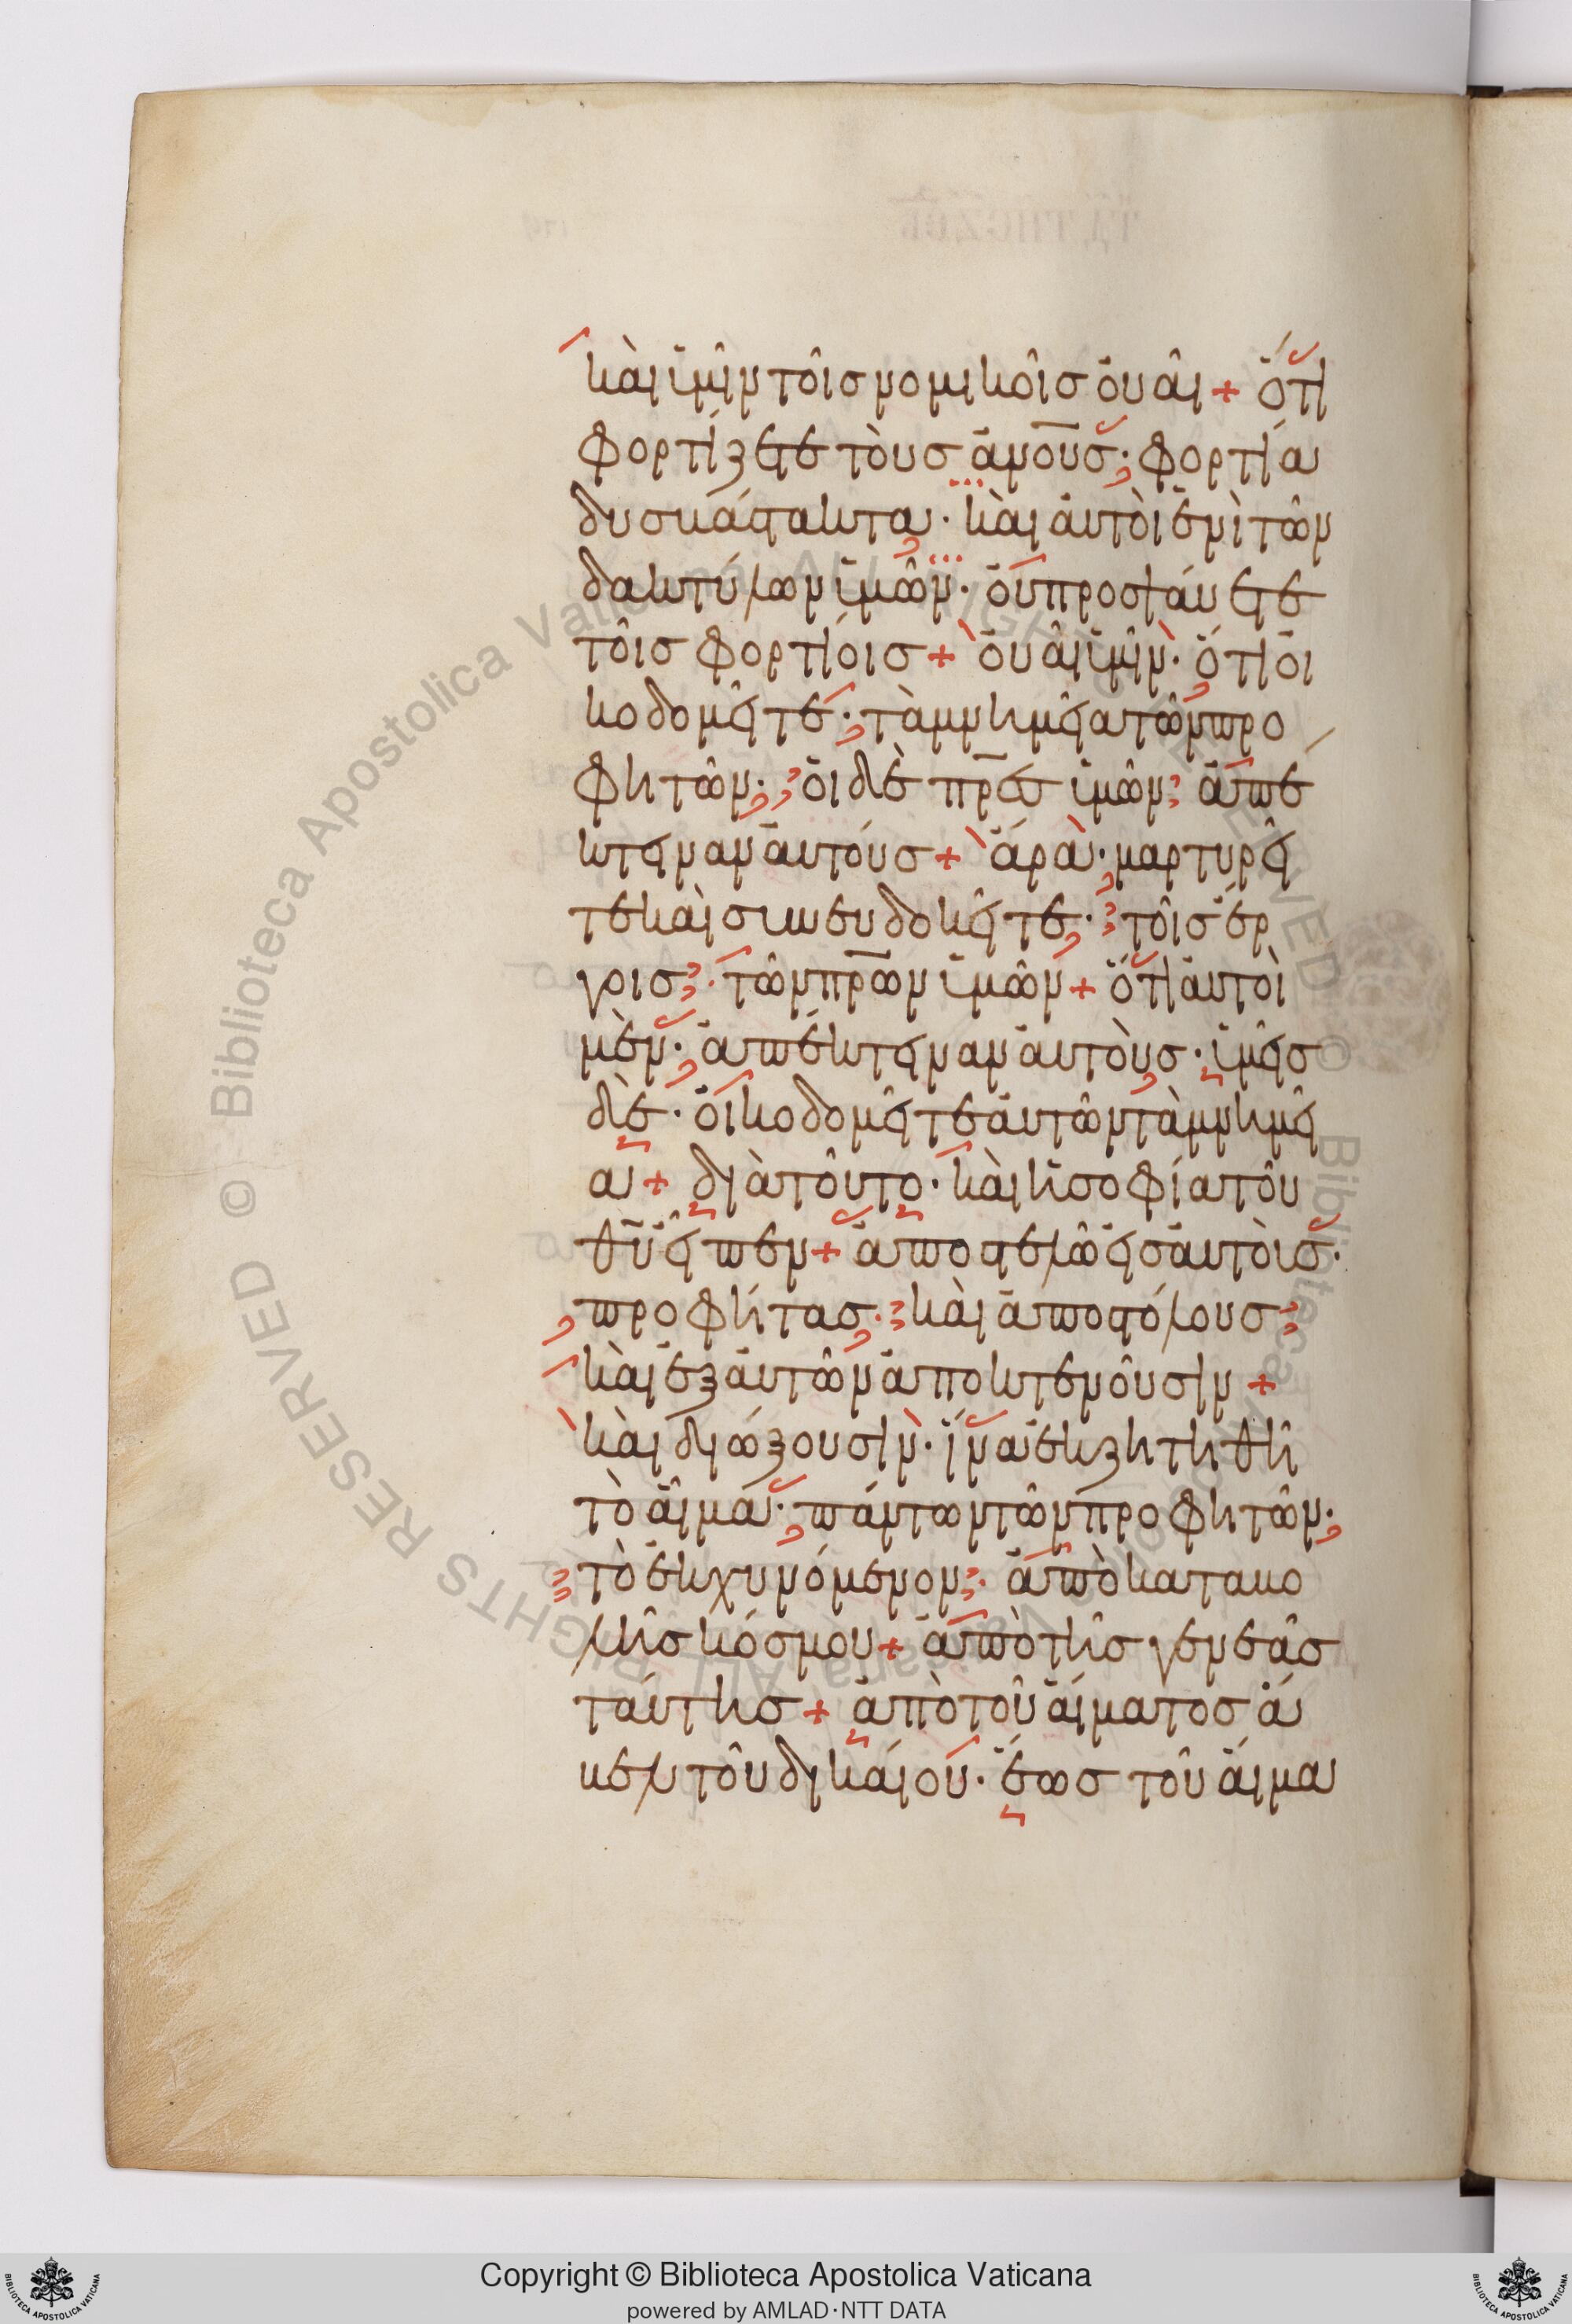 καὶ ὑμῖν τοῖς νομικοῖς οὐαί + ὅτι
φορτίζετε τοὺς ἀνους· φορτία
δυσβάστακτα· καὶ αὐτοὶ ἑνὶ τῶν
δακτύλων ὑμῶν· οὐ προσψάυετε
τοῖς φορτίοις + οὐαὶ ὑμῖν· ὅτι οἰ
κοδομεῖτε· τὰ μνημεῖα τῶν προ
φητῶν· οἱ δὲ πρες ὑμῶν· ἀπέ
κτειναν αὐτούς + ἄρα· μαρτυρεῖ
τε καὶ συνευδοκεῖτε· τοῖς ἔρ
γοις· τῶν πρων ὑμῶν + ὅτι αὐτοὶ
μὲν· ἀπέκτειναν αὐτοὺς· ὑμεῖς
δὲ· οἰκοδομεῖτε αὐτῶν τὰ μνημεῖ
α + διὰ τοῦτο· καὶ ἡ σοφία τοῦ
θυ εἶπεν + ἀποστελῶ εἰς αὐτοὺς·
προφήτας· καὶ ἀποστόλους
καὶ ἐξ αὐτῶν ἀποκτενοῦσιν +
καὶ διώξουσιν· ἵνα ἐκζητηθῆ
τὸ αἷμα· πάντων τῶν προφητῶν·
τὸ ἐκχυνόμενον· ἀπὸ καταβο
λῆς κόσμου + ἀπὸ τῆς γενεᾶς
ταύτης + ἀπὸ τοῦ αἵματος ἄ
βελ τοῦ δικαίου· ἕως τοῦ αἵμα
Copyright © Biblioteca Apostolica Vaticana
powered by AMLAD·NTT DATA